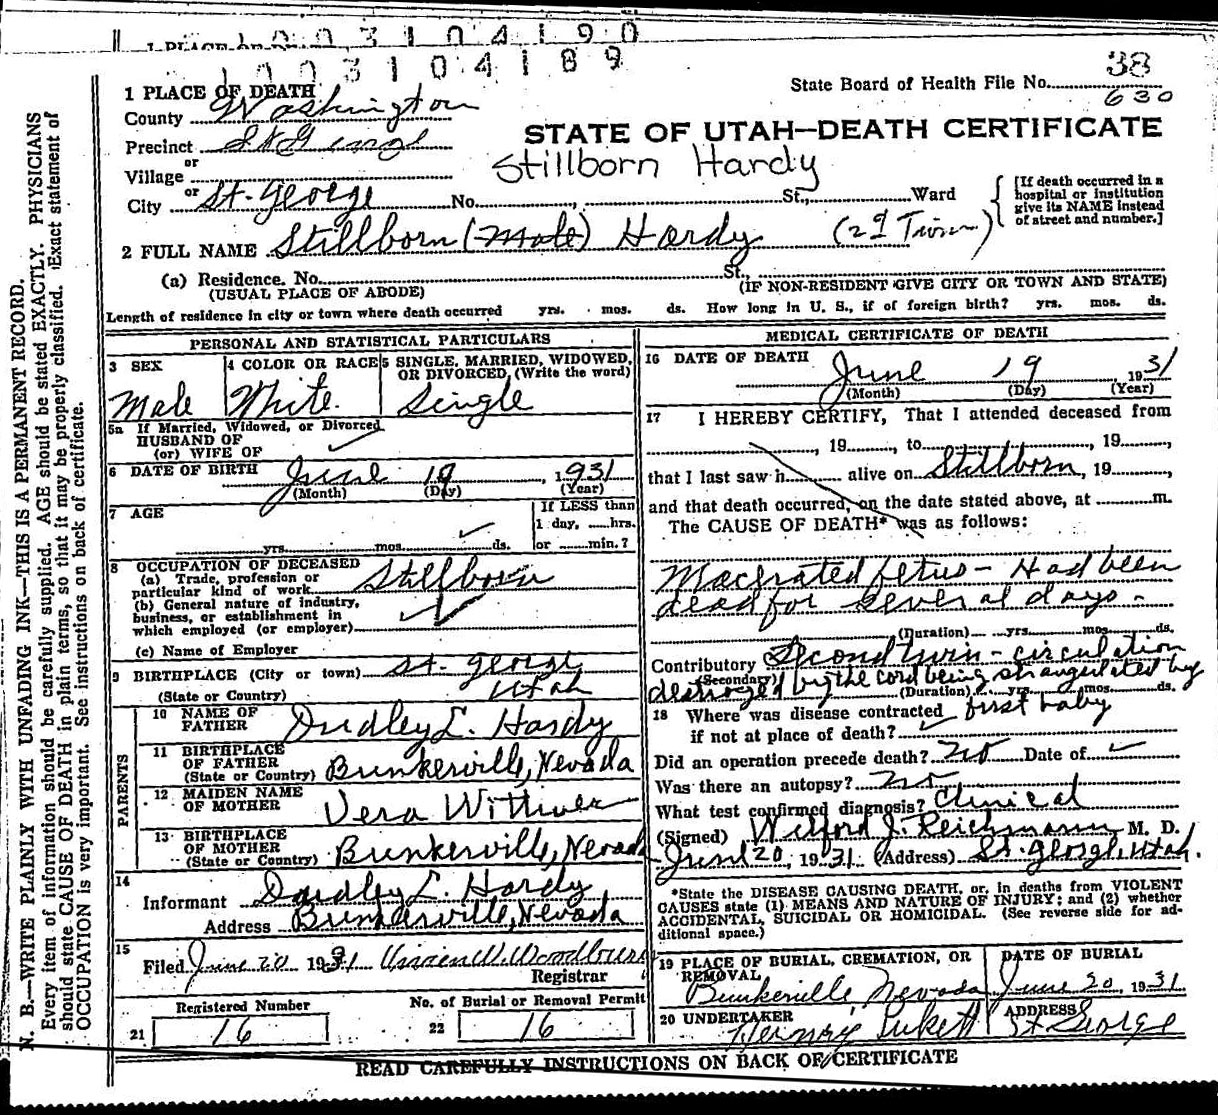 1003104190
1 PLACE OF DEATH
1003104189
State Board of Health File No. 38
630
1 PLACE OF DEATH
County Washington
STATE OF UTAH—DEATH CERTIFICATE
Precinct St George
Stillborn Hardy
or
Village
or
City St. George No. St., Ward
[If death occurred in a hospital or institution give its NAME instead of street and number.]
2 FULL NAME Stillborn (Male) Hardy (2d Twin)
(a) Residence. No. St.,
(USUAL PLACE OF ABODE) (IF NON-RESIDENT GIVE CITY OR TOWN AND STATE)
Length of residence in city or town where death occurred yrs. mos. ds. How long in U. S., if of foreign birth? yrs. mos. ds.
PERSONAL AND STATISTICAL PARTICULARS
3 SEX 4 COLOR OR RACE 5 SINGLE, MARRIED, WIDOWED,
OR DIVORCED, (Write the word)
Male White. Single
5a If Married, Widowed, or Divorced
HUSBAND OF
(or) WIFE OF
6 DATE OF BIRTH June 19, 1931
(Month) (Day) (Year)
7 AGE If LESS than
1 day, ......hrs.
yrs. mos. ds. or ......min.?
8 OCCUPATION OF DECEASED
(a) Trade, profession or
particular kind of work Stillborn
(b) General nature of industry,
business, or establishment in
which employed (or employer)
(c) Name of Employer
9 BIRTHPLACE (City or town) St. George
(State or Country) Utah
PARENTS
10 NAME OF
FATHER Dudley L. Hardy
11 BIRTHPLACE
OF FATHER
(State or Country) Bunkerville, Nevada
12 MAIDEN NAME
OF MOTHER Vera Wittwer
13 BIRTHPLACE
OF MOTHER
(State or Country) Bunkerville, Nevada
14
Informant Dudley L. Hardy
Address Bunkerville, Nevada
15
Filed June 20 1931
Registrar
Registered Number No. of Burial or Removal Permit
21 16 22 16
MEDICAL CERTIFICATE OF DEATH
16 DATE OF DEATH June 19 1931
(Month) (Day) (Year)
17 I HEREBY CERTIFY, That I attended deceased from
, 19......, to , 19......,
that I last saw h alive on Stillborn, 19......,
and that death occurred, on the date stated above, at m.
The CAUSE OF DEATH* was as follows:
Macerated fetus - Had been
dead for several days -
(Duration) yrs. mos. ds.
Contributory Second twin - circulation
(Secondary)
destroyed by the cord being strangulated by
(Duration) yrs. mos. ds.
first baby
18 Where was disease contracted
if not at place of death?
Did an operation precede death? no Date of
Was there an autopsy? no
What test confirmed diagnosis? Clinical
(Signed) Wilford J. Reichmann M. D.
June 20, 1931 (Address) St. George, Utah.
*State the DISEASE CAUSING DEATH, or, in deaths from VIOLENT
CAUSES state (1) MEANS AND NATURE OF INJURY; and (2) whether
ACCIDENTAL, SUICIDAL OR HOMICIDAL. (See reverse side for ad-
ditional space.)
19 PLACE OF BURIAL, CREMATION, OR
REMOVAL
Bunkerville Nevada
DATE OF BURIAL
June 20, 1931
20 UNDERTAKER
ADDRESS
St George
READ CAREFULLY INSTRUCTIONS ON BACK OF CERTIFICATE
N. B.—WRITE PLAINLY WITH UNFADING INK—THIS IS A PERMANENT RECORD.
Every item of information should be carefully supplied. AGE should be stated EXACTLY. PHYSICIANS
should state CAUSE OF DEATH in plain terms, so that it may be properly classified. Exact statement of
OCCUPATION is very important. See instructions on back of certificate.